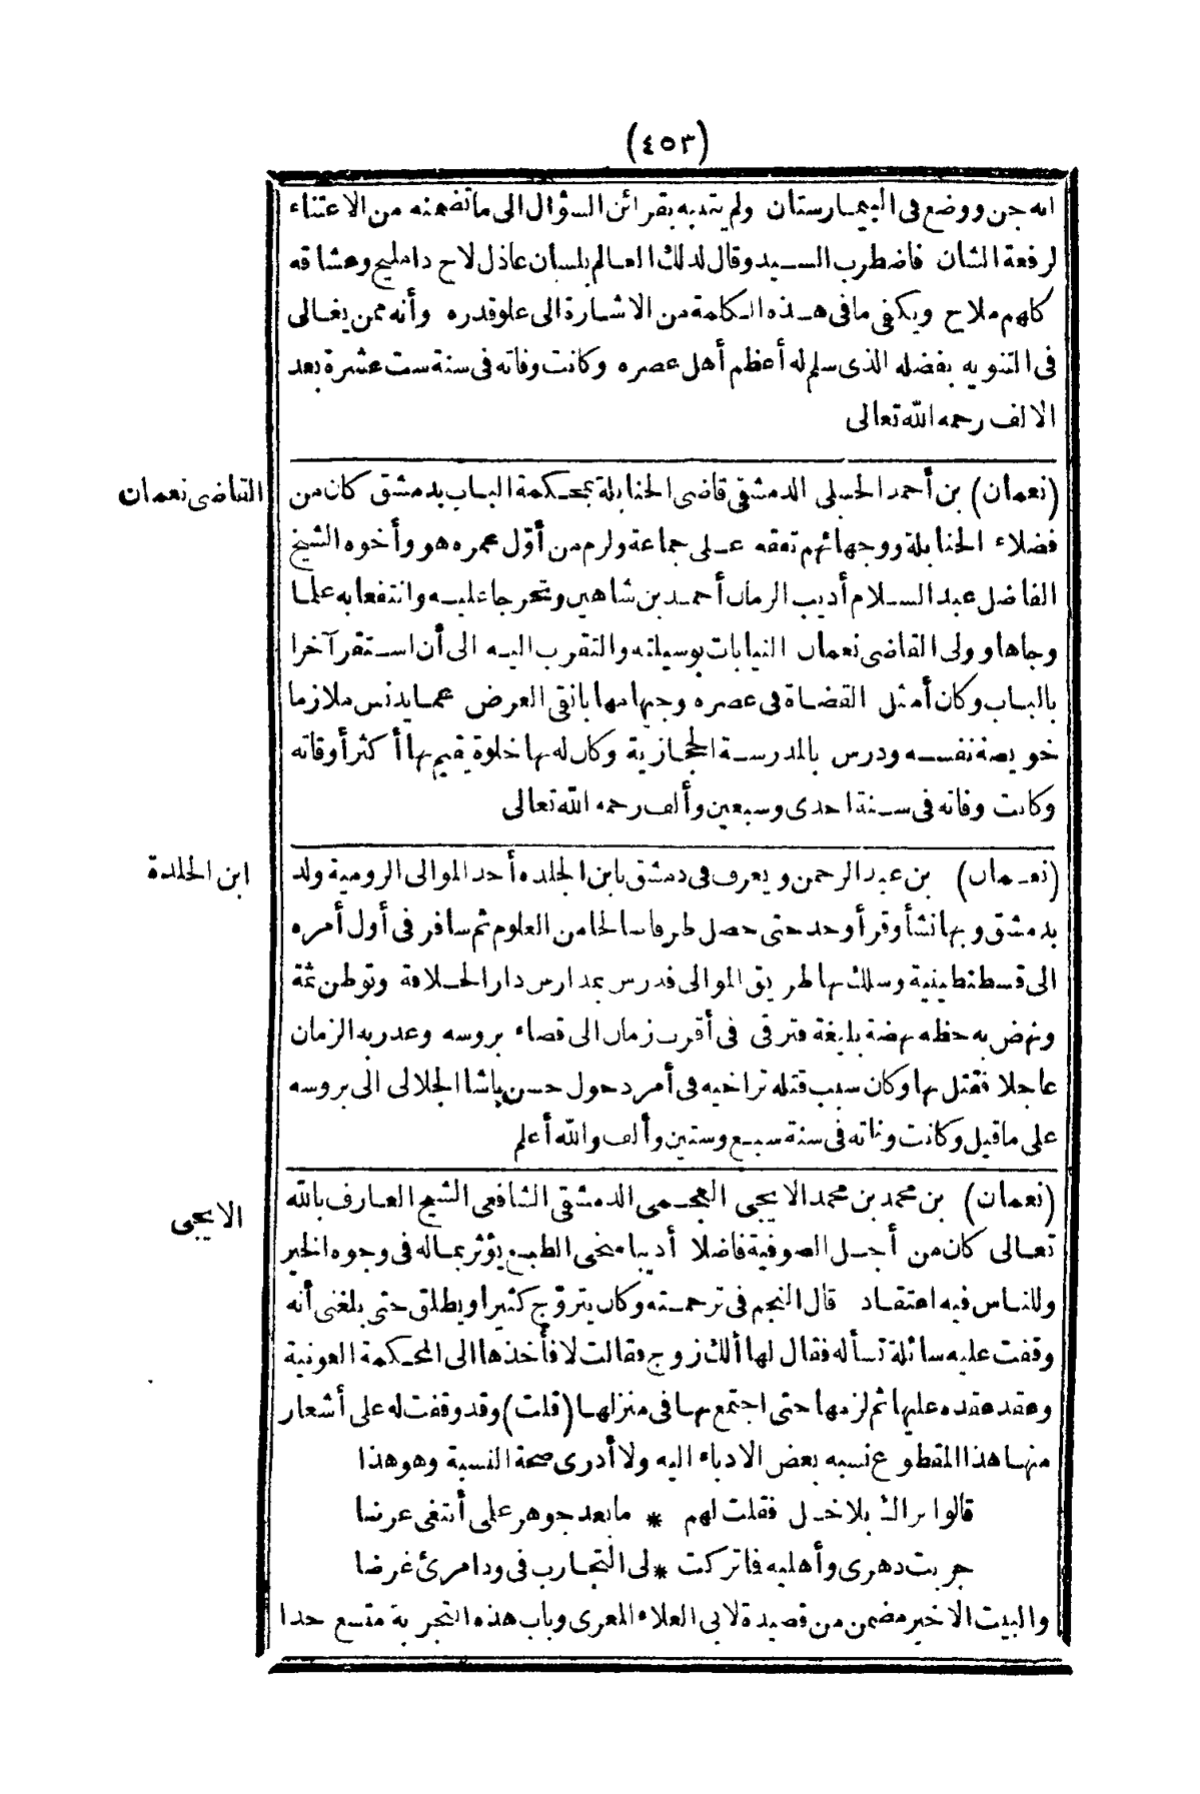 (٤٥٣)
انه جن ووضع فى البيمارستان ولم يتنبه بقرائن السؤال الى ماتضمنه من الاعتناء
لرفعة الشان فاضطرب السيد وقال لذلك العالم بلسان عاذل لاح دامليح وعشاقه
كلهم ملاح ويكفى مافى هذه الكلمة من الاشارة الى علوقدره وأنه ممن يغالى
فى التنويه بفضله الذى سلم له أعظم أهل عصره وكانت وفاته فى سنة ست عشرة بعد
الالف رحمه الله تعالى
القاضى نعمان
(نعمان) بن أحمد الحنبلى الدمشقى قاضى الحنابلة بمحكمة الباب بدمشق كان من
فضلاء الحنابلة ووجهائهم تفقه على جماعة ولزم من أوّل عمره هو وأخوه الشيخ
الفاضل عبد السلام أديب الزمان أحمد بن شاهين وتخرجا عليه وانتفعا به علما
وجاها وولى القاضى نعمان النيابات بوسيلته والتقرب اليه الى أن استقر آخرا
بالباب وكان أمثل القضاة فى عصره وجيها مهابا نقى العرض عما يدنس ملازما
خويصة نفسه ودرس بالمدرسة الحجازية وكان له بها خلوة يقيم بها أكثر أوقاته
وكانت وفاته فى سنة احدى وسبعين وألف رحمه الله تعالى
ابن الجلدة
(نعمان) بن عبد الرحمن ويعرف فى دمشق بابن الجلده أحد الموالى الرومية ولد
بدمشق وبها نشأ وقرأ وجد حتى حصل طرفا صالحا من العلوم ثم سافر فى أول أمره
الى قسطنطينية وسلك بها طريق الموالى فدرس بمدارس دار الخلافة وتوطن ثمة
ونهض به حظه نهضة بليغة فترقى فى أقرب زمان الى قضاء بروسه وغدر به الزمان
عاجلا فقتل بها وكان سبب قتله تراخيه فى أمر دخول حسن پاشا الجلالى الى بروسه
على ماقيل وكانت وفاته فى سنة سبع وستين وألف والله أعلم
الايجى
(نعمان) بن محمد بن محمد الايجى العجمى الدمشقى الشافعى الشيخ العارف بالله
تعالى كان من أجل الصوفية فاضلا أديبا سخى الطبع يؤثر بماله فى وجوه الخير
وللناس فيه اعتقاد قال النجم فى ترجمته وكان يتزوّج كثيرا ويطلق حتى بلغنى أنه
وقفت عليه سائلة تسأله فقال لها ألك زوج فقالت لا فأخذها الى المحكمة العونية
وعقد عقده عليها ثم لزمها حتى اجتمع بها فى منزلها (قلت) وقد وقفت له على أشعار
منها هذا المقطوع نسبه بعض الادباء اليه ولا أدرى صحة النسبة وهو هذا
قالوا نراك بلا خل فقلت لهم * مابعد جوهر على أبتغى عرضا
جربت دهرى وأهليه فاتركت * لى التجارب فى ود امرئ غرضا
والبيت الاخير مضمن من قصيدة لابى العلاء المعرى وباب هذه التجربة متسع جدا